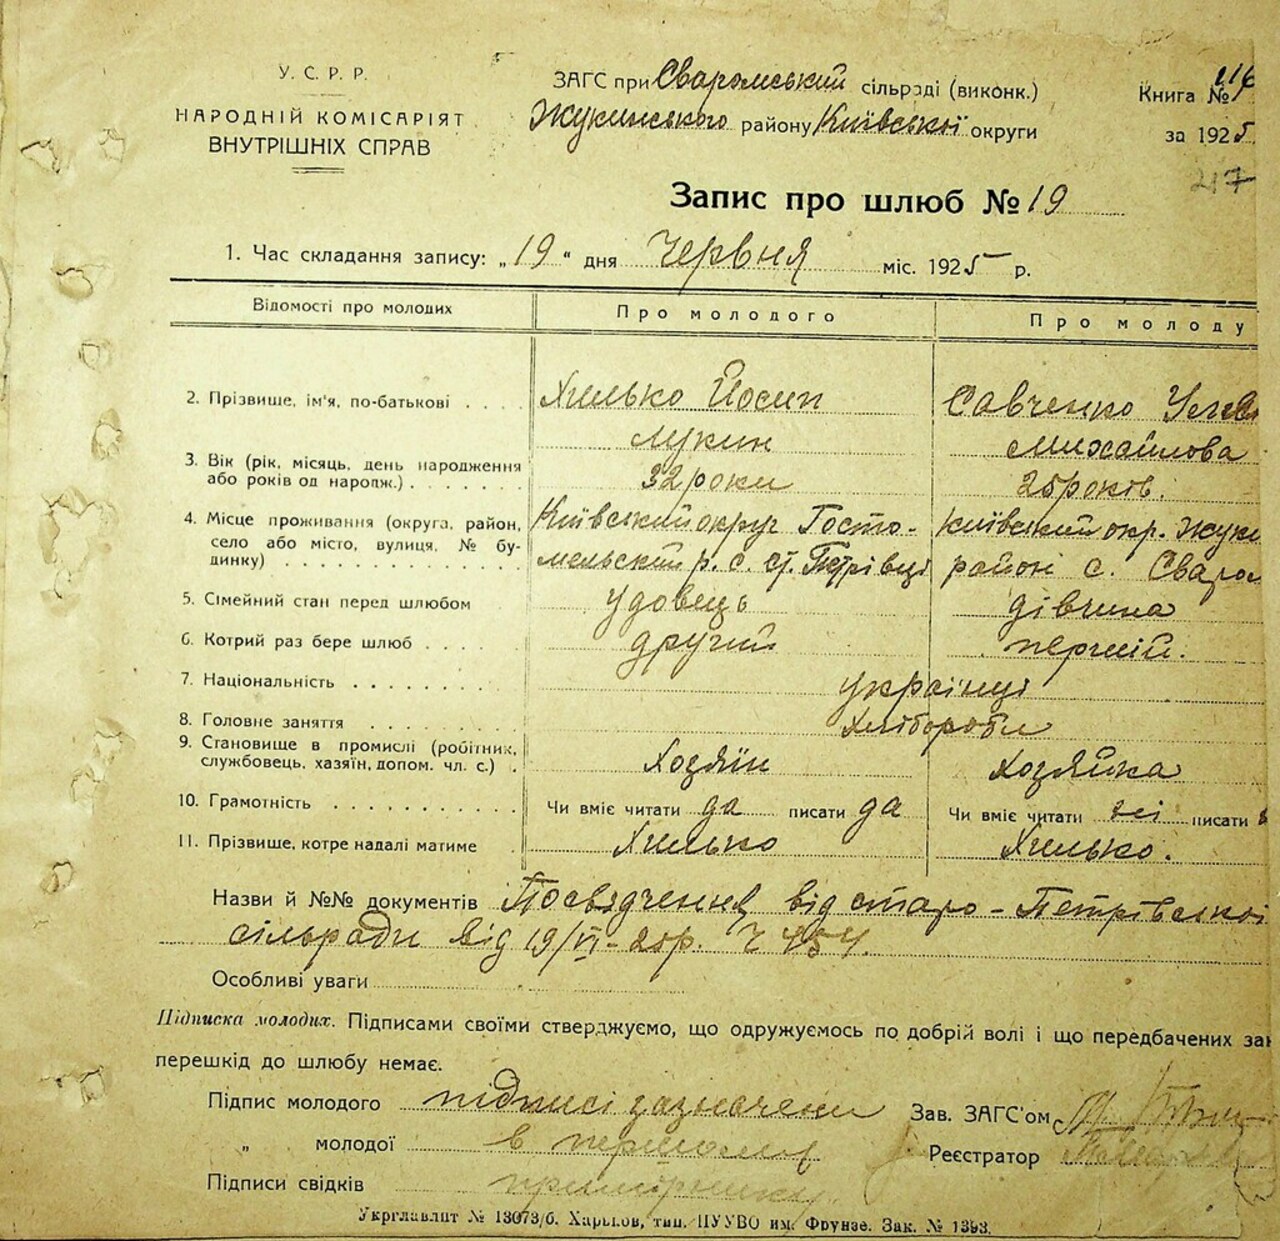 У. С. Р. Р.
НАРОДНІЙ КОМІСАРІЯТ
ВНУТРІШНІХ СПРАВ
ЗАГС при Сваромський сільраді (виконк.)
Жукинського району Київської округи
Книга №
за 1925
217
Запис про шлюб № 19
1. Час складання запису: „19“ дня Червня міс. 1925 р.
Відомості про молодих Про молодого Про молоду
2. Прізвище, ім'я, по-батькові Хилько Йосип Савченко
Лукин Михайлова
3. Вік (рік, місяць, день народження або років од народж.) 32 роки 25 років.
4. Місце проживання (округа, район, Київський округ Госто- Київський окр. Жуки
село або місто, вулиця, № бу- мельский р. с. ст. Петрівці район с. Сваром
динку)
5. Сімейний стан перед шлюбом удовець дівчина
6. Котрий раз бере шлюб другий перший.
7. Національність українці
8. Головне заняття Хлібороби
9. Становище в промислі (робітник, Хозяїн Хозяйка
службовець, хазяїн, допом. чл. с.)
10. Грамотність Чи вміє читати да писати да Чи вміє читати ні писати
11. Прізвище, котре надалі матиме Хилько Хилько.
Назви й №№ документів Посвядчення від старо-Петрівської
сільради від 19/VI-25р. Ч 454.
Особливі уваги
Підписка молодих. Підписами своїми стверджуємо, що одружуємось по добрій волі і що передбачених зак
перешкід до шлюбу немає.
Підпис молодого підписі зазначени Зав. ЗАГС'ом
„ молодої в першому Реєстратор
Підписи свідків примірнику
Укрглавліт № 13073/б. Харьков, тип. ЦУУВО им. Фрунзе. Зак. № 1393.